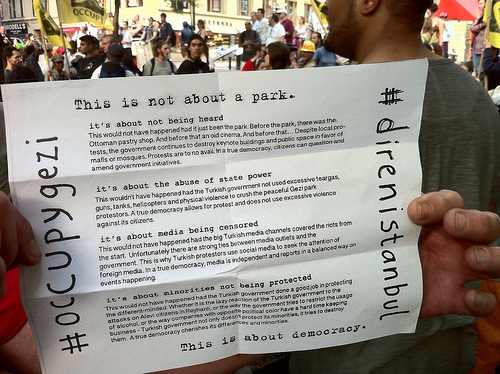 MODELL'S
OCCUPY
This is not about a park.
#occupygezi
#direnistanbul
it's about not being heard
This would not have happened had it just been the park. Before the park, there was the
Ottoman pastry shop. And before that an old cinema. And before that... Despite local pro-
tests, the government continues to destroy keynote buildings and public space in favor of
malls or mosques. Protests are to no avail. In a true democracy, citizens can question and
amend government initiatives.
it's about the abuse of state power
This wouldn't have happened had the Turkish government not used excessive teargas,
guns, tanks, helicopters and physical violence to crush the peaceful Gezi park
protestors. A true democracy allows for protest and does not use excessive violence
against its citizens.
it's about media being censored
This would not have happened had the big Turkish media channels covered the riots from
the start. Unfortunately there are strong ties between media outlets and the
government. This is why Turkish protestors use social media to seek the attention of
foreign media. In a true democracy, media is independent and reports in a balanced way on
events happening.
it's about minorities not being protected
This would not have happened had the Turkish government done a good job in protecting
the different-minded. Whether it is the lazy reaction of the Turkish government to the
attacks on Alevi citizens in Reyhanli, or the way the government tries to restrict the usage
of alcohol, or the way companies with opposite political color have a hard time keeping
business - Turkish government not only doesn't protect its minorities, it tries to destroy
them. A true democracy cherishes its differences and minorities.
This is about democracy.